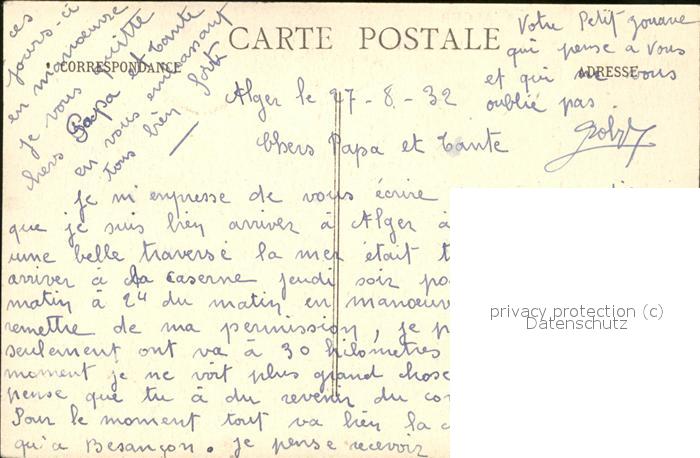 CARTE POSTALE
CORRESPONDANCE
ADRESSE
Alger le 27-8-32
Chers Papa et Tante
Je m'enpresse de vous écrire
que je suis bien arriver à Alger à
une belle traversé la mer était t
arriver à la caserne jeudi soir po
matin à 2h du matin en manœuv
remettre de ma permission, je p
seulement ont va à 30 kilomètres
moment je ne voit plus grand chose
pense que tu à du revenir du co
Pour le moment tout va bien la c
qu'a Besançon. Je pense recevoir
ces
jours-ci
en manœuvre
je vous quitte
chers Papa et Tante
en vous embrassant
tous bien fort
Votre Petit zouave
qui pense à vous
et qui ne vous
oublié pas.
privacy protection (c)
Datenschutz